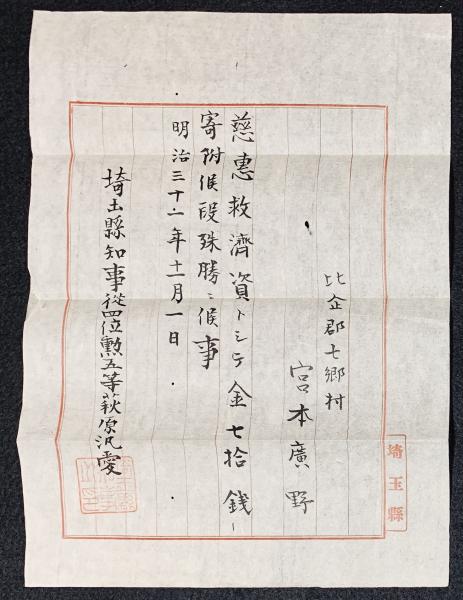 比企郡七郷村
宮本廣野
慈惠救濟資トシテ金七拾錢
寄附候段殊勝ニ候事
明治三十二年十一月一日
埼玉縣知事從四位勲五等萩原汎愛
埼玉縣